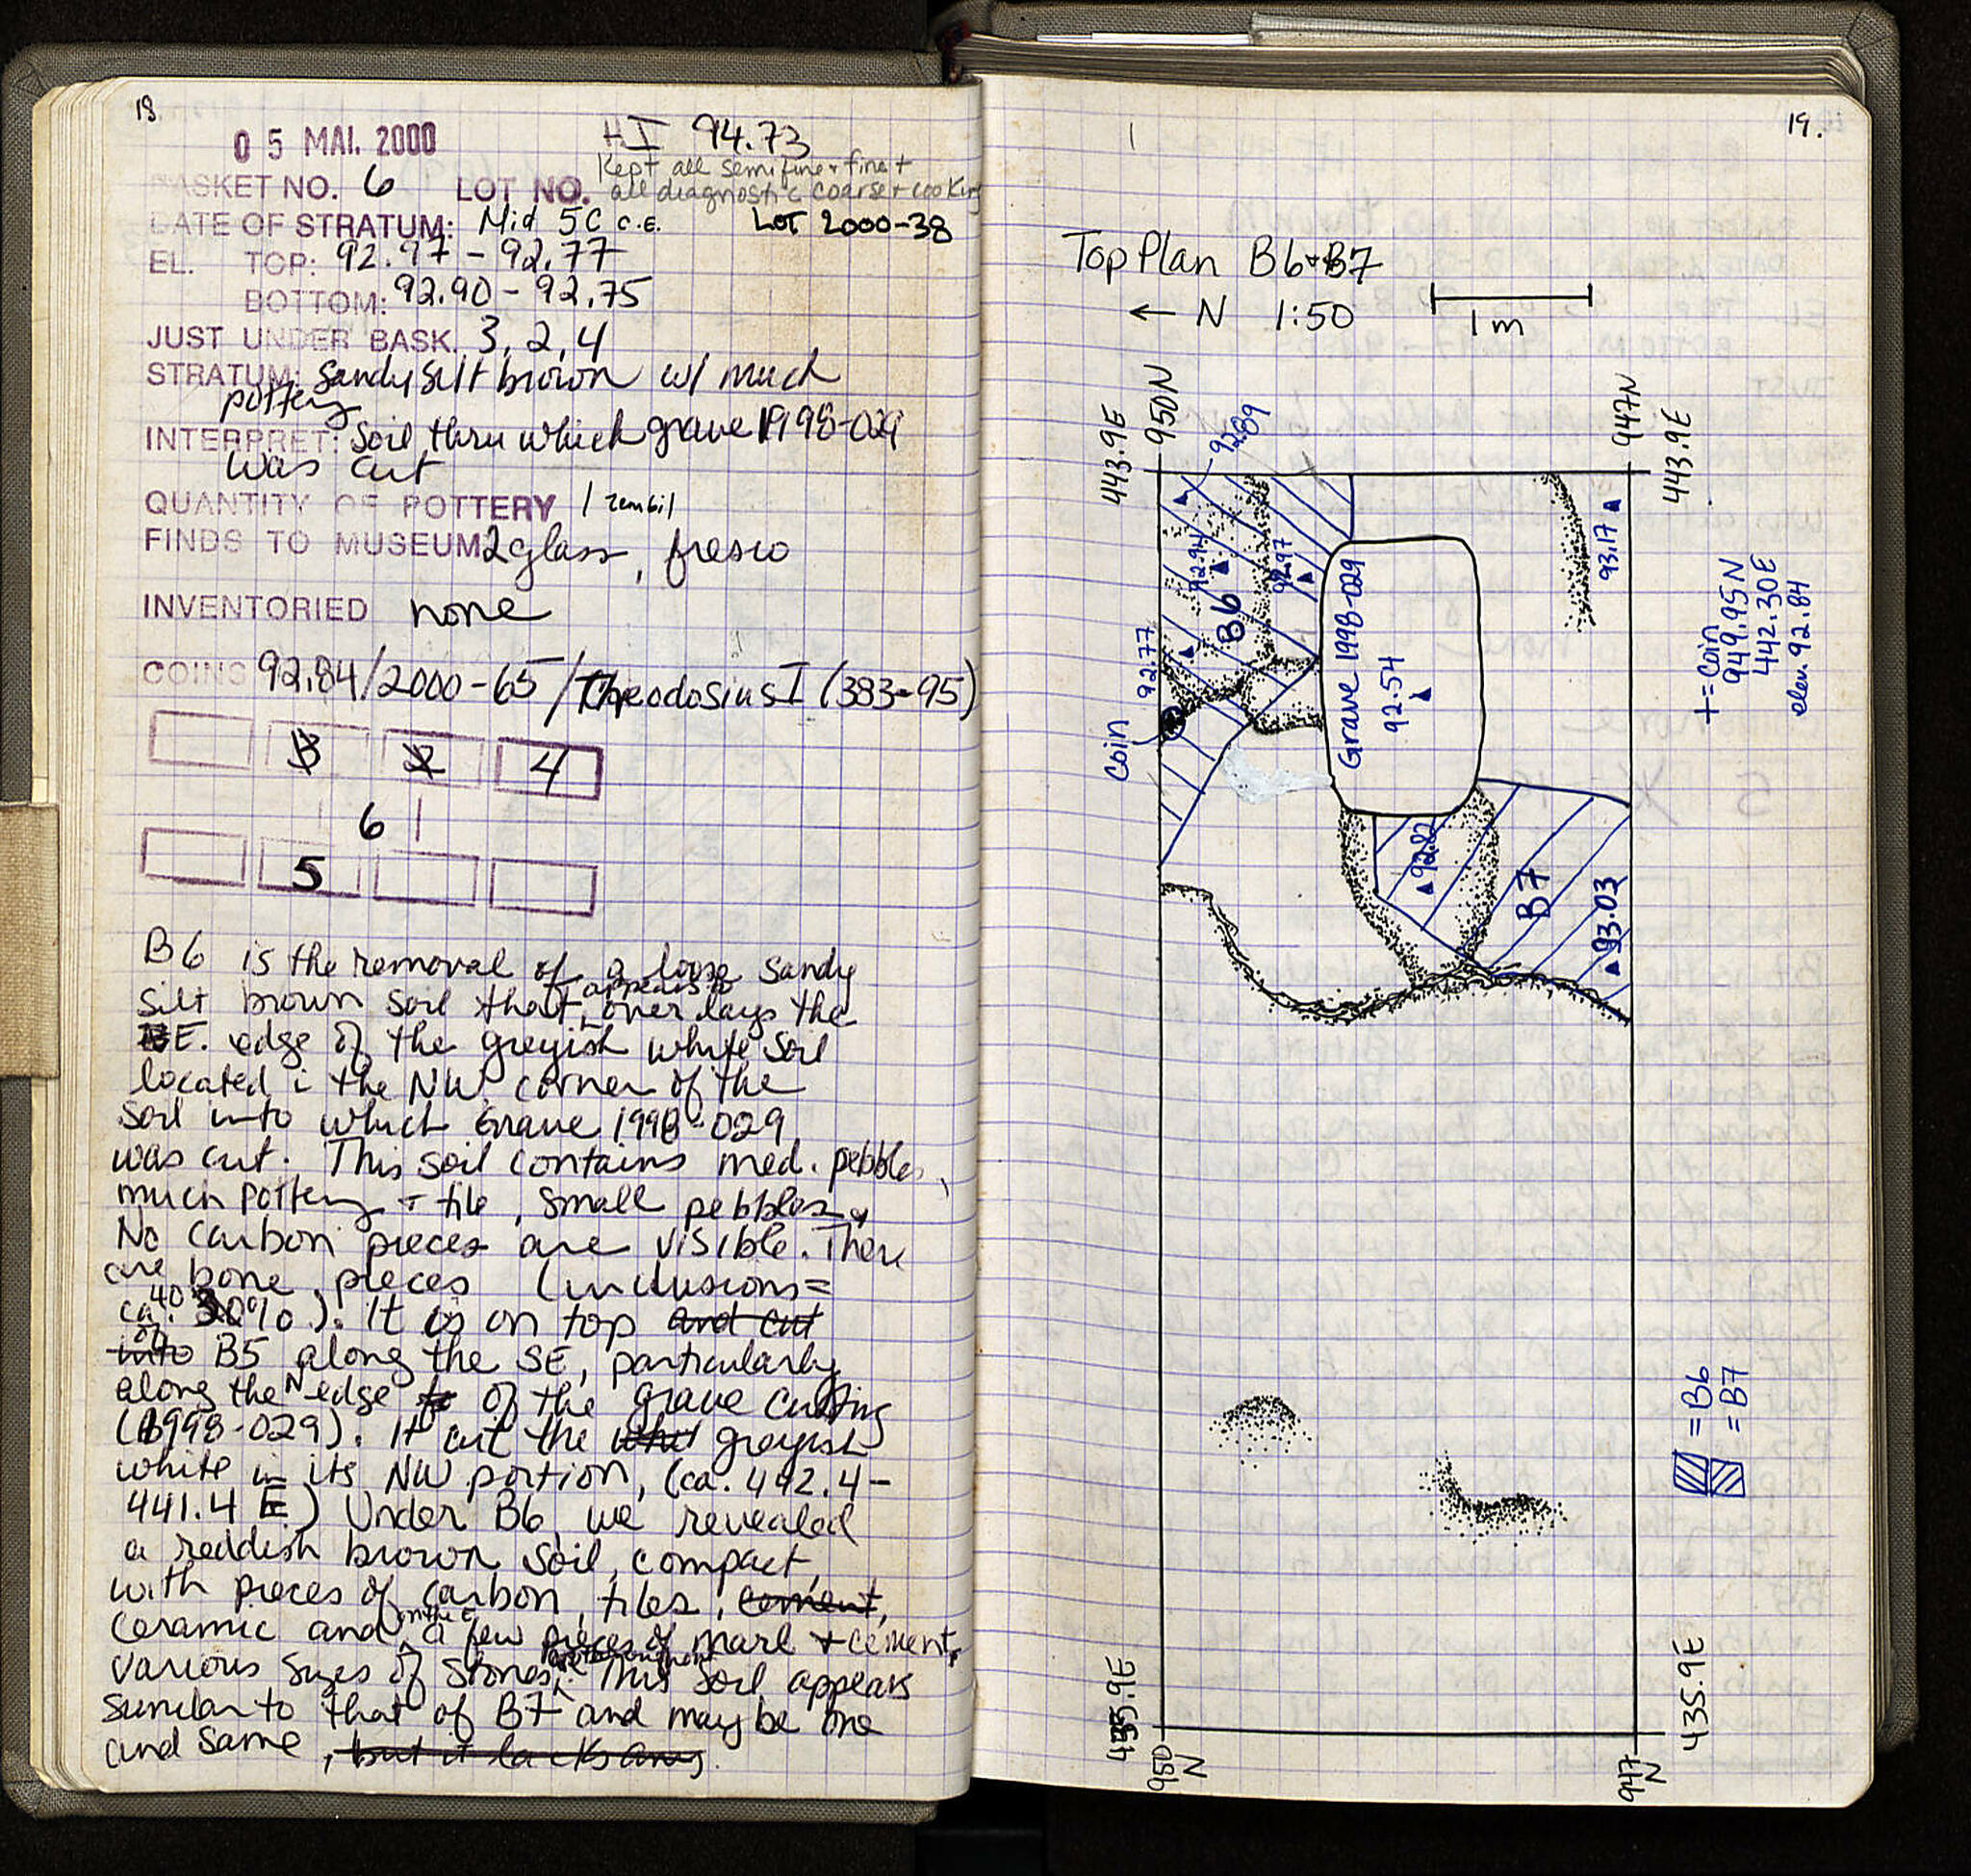 18
0 5 MAI. 2000
HI 94.73
BASKET NO. 6 LOT NO. Kept all semifine + fine +
all diagnostic coarse + cooking
DATE OF STRATUM: Mid 5C C.E. LOT 2000-38
EL. TOP: 92.97 - 92.77
BOTTOM: 92.90 - 92.75
JUST UNDER BASK. 3, 2, 4
STRATUM: Sandy silt brown w/ much
pottery
INTERPRET: Soil thru which grave 1998-029
was cut
QUANTITY OF POTTERY 1 zembil
FINDS TO MUSEUM 2 glass, fresco
INVENTORIED none
COINS 92.84/2000-65/Theodosius I (383-95)
3 2 4
6
5
B6 is the removal of a loose sandy
silt brown soil that appears to overlays the
E. edge of the greyish white soil
located i the NW corner of the
soil into which Grave 1998-029
was cut. This soil contains med. pebbles,
much pottery + tile, small pebbles,
No carbon pieces are visible. There
are bone pieces (inclusions =
ca. 40 30%). It is on top and cut
into of B5 along the SE, particularly
along the N edge of the grave cutting
(1998-029). It cut the whit greyish
white in its NW portion, (ca. 442.4-
441.4 E) Under B6, we revealed
a reddish brown soil, compact,
with pieces of carbon, tiles, cement,
ceramic and on the E a few pieces of marl + cement,
various sizes of stones. This soil appears
similar to that of B7 and may be one
and same, but it lacks any.
19.
Top Plan B6+B7
← N 1:50
1m
443.9E
950N
92.89
947N
443.9E
93.17
92.94
92.97
B6
92.77
Coin
Grave 1998-029
92.54
+ = Coin
949.95N
442.30E
elev. 92.84
92.82
B7
93.03
= B6
= B7
435.9E
950
N
947
N
435.9E